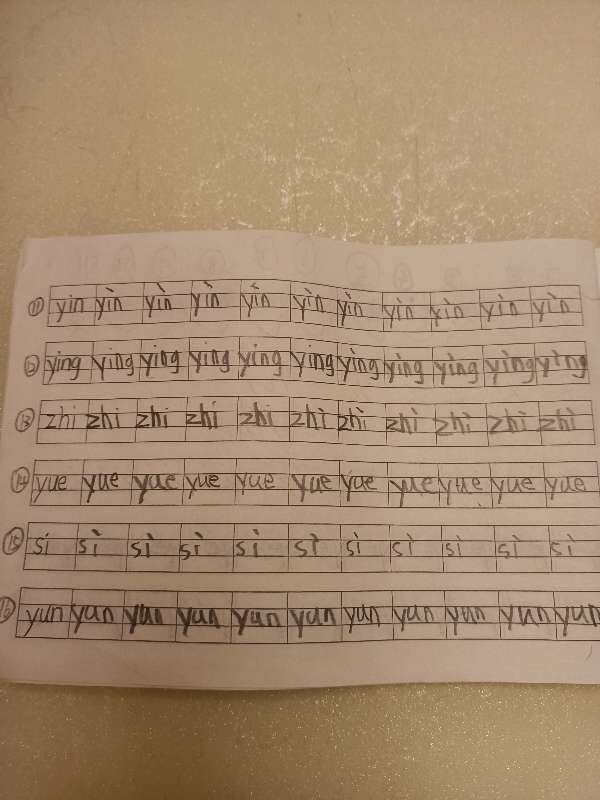 ⑪ yin yìn yìn yìn yín yìn yìn yìn yìn yìn yìn
⑫ ying ying ying ying ying ying yìng yìng yìng yìng yìng
⑬ zhi zhi zhi zhi zhi zhì zhì zhì zhì zhì zhì
⑭ yue yue yue yue yue yue yue yue yue yue yue
⑮ si sì sì sì sì sì sì sì sì sì sì
⑯ yun yun yun yun yun yun yun yun yun yun yun